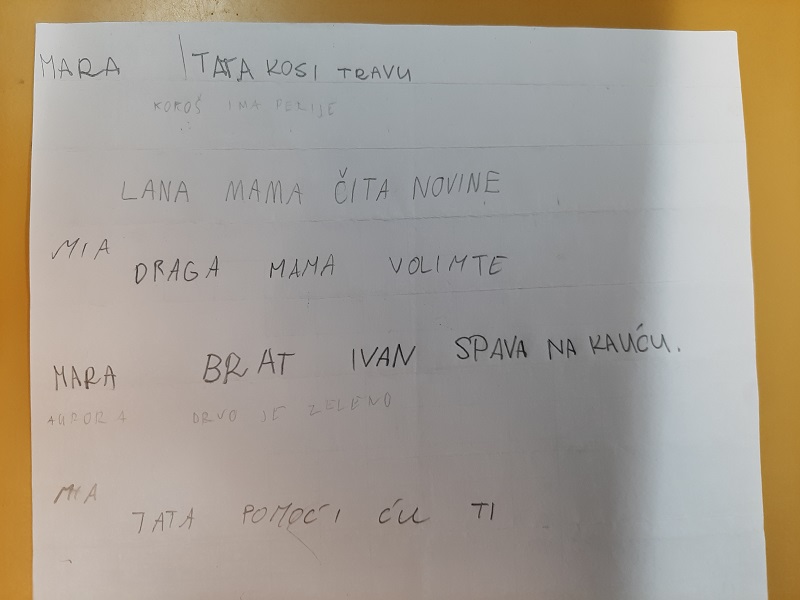 MARA TATA KOSI TRAVU
KOKOŠ IMA PERIJE
LANA MAMA ČITA NOVINE
MIA DRAGA MAMA VOLIMTE
MARA BRAT IVAN SPAVA NA KAUĆU.
AURORA DRVO JE ZELENO
MIA TATA POMOĆI ĆU TI